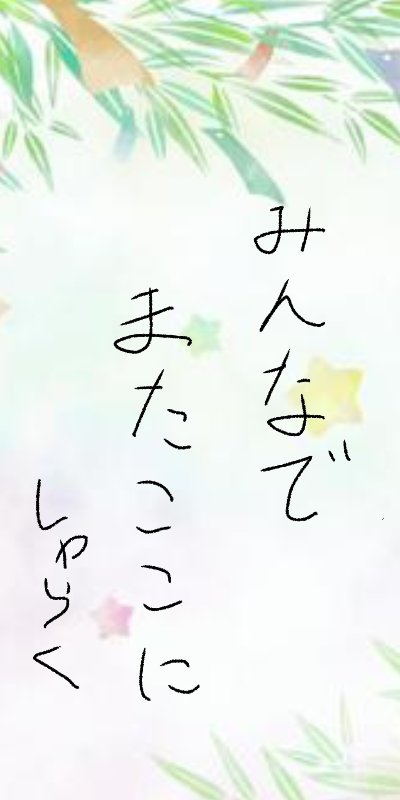 みんなで
またここに
しゃらく